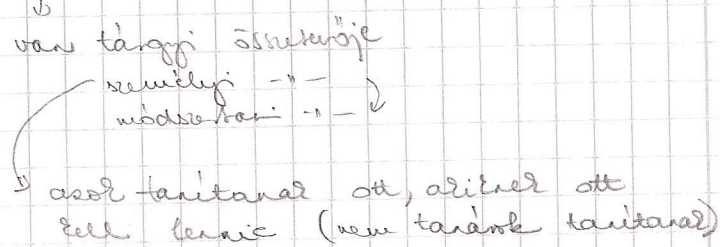 ↓
van tárgyi összetevője
személyi -"-
módszertani -"-
→ azok tanítanak ott, akiknek ott
kell lenniе (nem tanárok tanítanak)